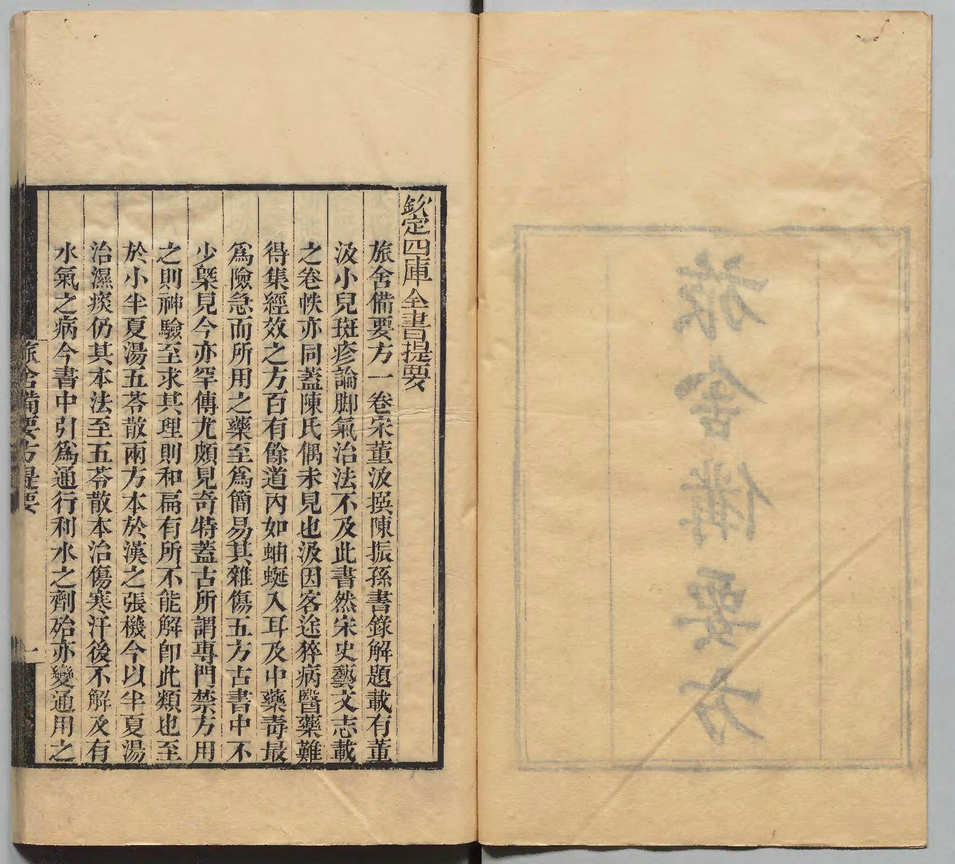 旅舍備要方
欽定四庫全書提要
旅舍備要方一卷宋董汲撰陳振孫書錄解題載有董
汲小兒斑疹論脚氣治法不及此書然宋史藝文志載
之卷帙亦同蓋陳氏偶未見也汲因客途猝病醫藥難
得集經效之方百有餘道內如蚰蜒入耳及中藥毒最
爲險急而所用之藥至爲簡易其雜傷五方古書中不
少槩見今亦罕傳尤頗見奇特蓋古所謂專門禁方用
之則神驗至求其理則和扁有所不能解卽此類也至
於小半夏湯五苓散兩方本於漢之張機今以半夏湯
治濕痰仍其本法至五苓散本治傷寒汗後不解及有
水氣之病今書中引爲通行利水之劑殆亦變通用之
旅舍備要方提要
一